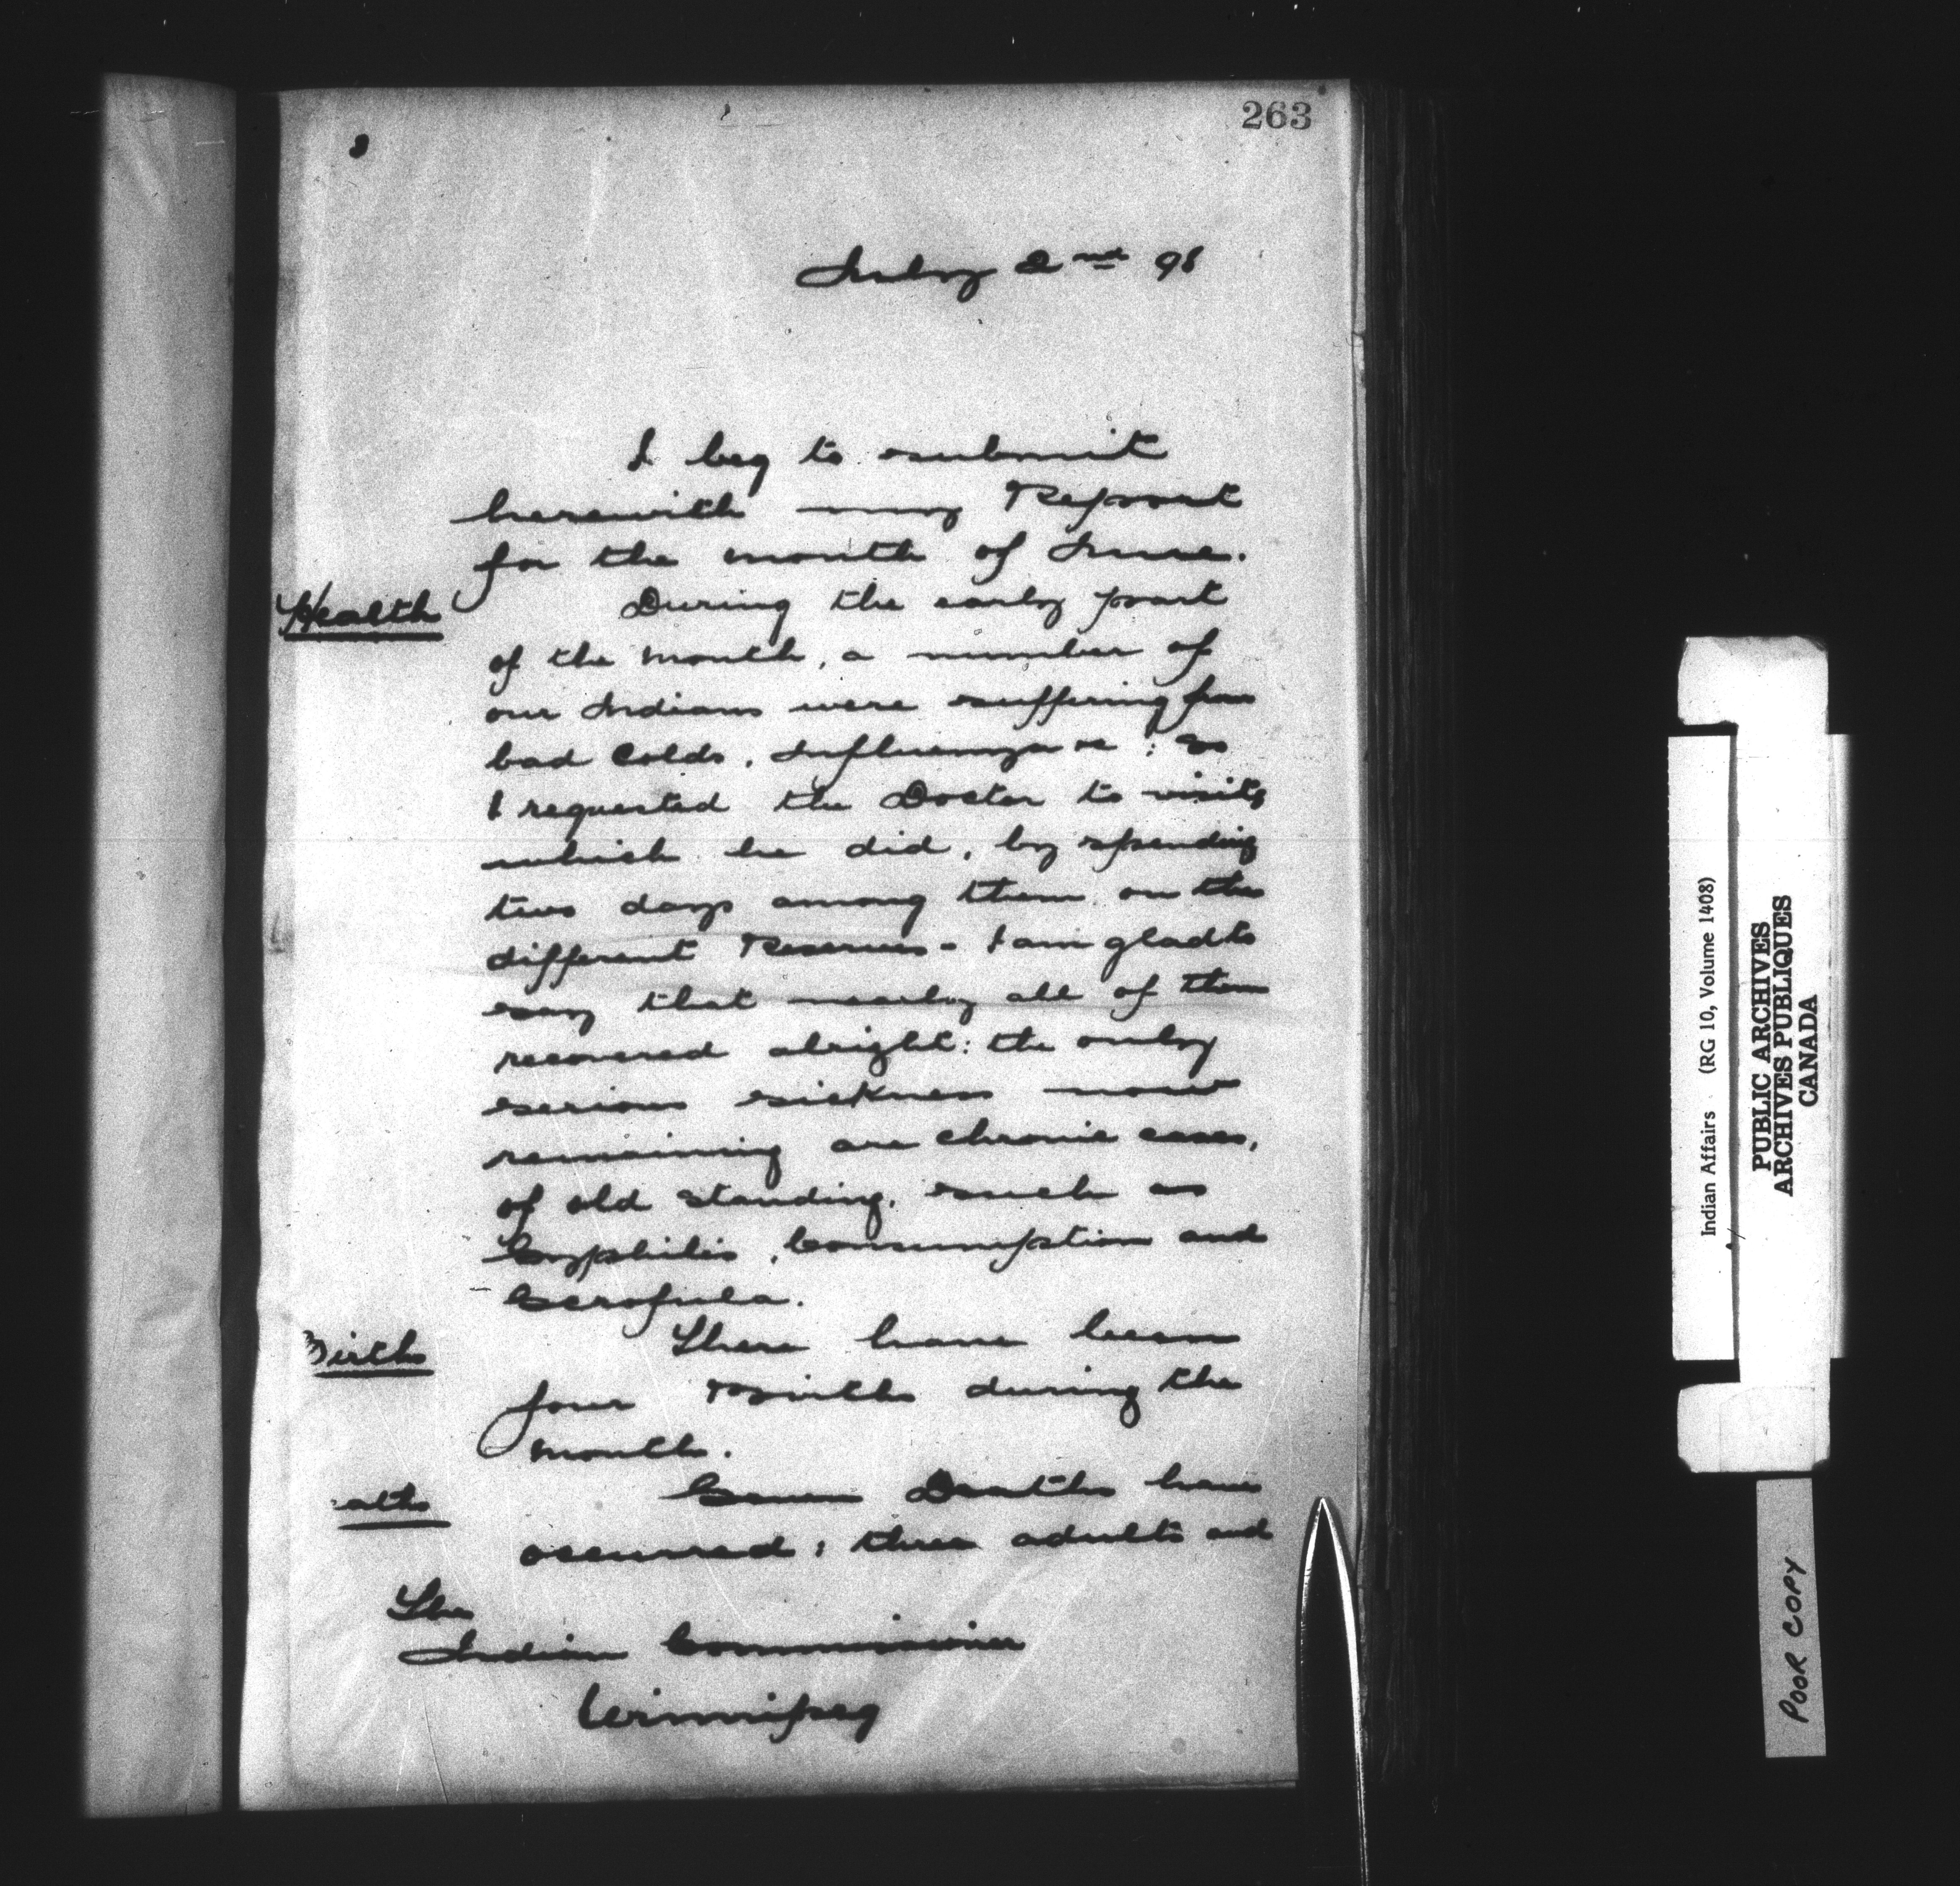 263
July 2nd 98
I beg to submit
herewith my Report
for the month of June.
Health
During the early part
of the month, a number of
our Indians were suffering from
bad Colds, Influenza &c: So
I requested the Doctor to visit,
which he did, by spending
two days among them on the
different Reserves - I am glad to
say that nearly all of them
recovered alright: the only
serious sickness now
remaining are chronic cases,
of old standing, such as
Syphilis, Consumption and
Scrofula.
Birth
There have been
four Births during the
month.
eaths
Seven Deaths have
occurred; three adults and
The
Indian Commissioner
Winnipeg
Indian Affairs (RG 10, Volume 1408)
PUBLIC ARCHIVES
ARCHIVES PUBLIQUES
CANADA
POOR COPY